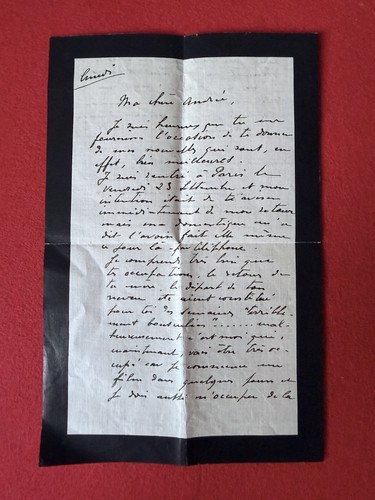 Lundi
Ma chère Andrée,
Je suis heureux que tu me
fournisses l'occasion de te donner
de mes nouvelles qui sont, en
effet, très meilleures.
Je suis rentré à Paris le
vendredi 23 septembre et mon
intention était de te
immédiatement de mon retour
mais ma domestique m'a
dit l'avoir fait elle même
ce jour là par téléphone
Je comprends très bien que
tes occupations, le retour de
ta mère, le départ de ton
neveu aient constitué
pour toi des semaines "terrible-
ment bousculées"...... mal-
heureusement c'est moi qui,
maintenant, vais être très oc-
cupé car je commence un
film dans quelques jours et
je dois aussi m'occuper de la